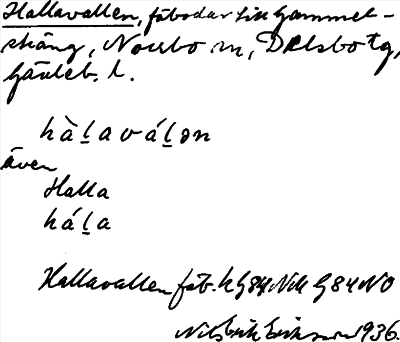 Hallavallen, fäbodar till Gammel-
sträng, Norrbo sn, Delsbo tg,
Gävleb. l.
hàḷaváḷən
även
Halla
háḷa
Hallavallen fäb. k G84 NV G84 NO
Nils Erik Eriksson 1936.